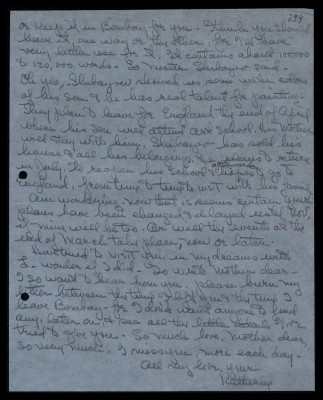 239
or keep it in Bombay for you. I think you should
have it, one way or the other, for I'll have
very little use for it. It contains about 100,000
to 120,000 words. So Master Shubaror said.
Oh yes, Shubaror showed us some water colors
of his son & he has real talent for painting.
They plan to leave for England the end of April
where his son will attend art school. His mother
will stay with him, Shubaror has sold his
house & all his belongings, he plans to return
in July, to reopen his School & hopes go to
England, from time to time to visit with his family.
Am wondering, now that it seems certain your
plans have been changed & delayed until Nov,
if mine will be too. Or will the events at the
end of March take place, now or later.
Don't need to visit him in my dreams until
I wonder if I did. So write Mother dear
I so want to hear from you, please burn my
letters between the time and the time I
leave Bombay for I don't want anyone to find
any, later on & see all the little details I've
tried to give you. So much love, Mother dear,
so very much. I miss you, more each day.
All my love, your
Katherine